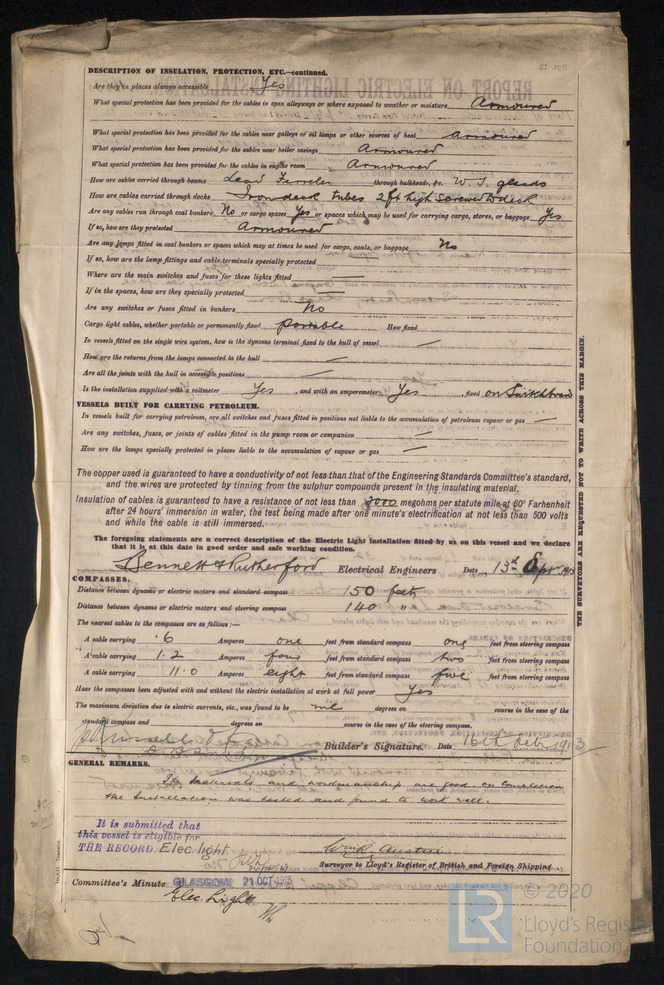 DESCRIPTION OF INSULATION, PROTECTION, ETC.—continued.
Are they in places always accessible Yes
What special protection has been provided for the cables in open alleyways or where exposed to weather or moisture Armoured
What special protection has been provided for the cables near galleys or oil lamps or other sources of heat Armoured
What special protection has been provided for the cables near boiler casings Armoured
What special protection has been provided for the cables in engine room Armoured
How are cables carried through beams Lead Ferrules through bulkheads, &c. W. T. glands
How are cables carried through decks Iron deck tubes 2 ft high screwed to deck
Are any cables run through coal bunkers No or cargo spaces Yes or spaces which may be used for carrying cargo, stores, or baggage Yes
If so, how are they protected Armoured
Are any lamps fitted in coal bunkers or spaces which may at times be used for cargo, coals, or baggage No
If so, how are the lamp fittings and cable terminals specially protected
Where are the main switches and fuses for these lights fitted
If in the spaces, how are they specially protected
Are any switches or fuses fitted in bunkers No
Cargo light cables, whether portable or permanently fixed portable How fixed
In vessels fitted on the single wire system, how is the dynamo terminal fixed to the hull of vessel
How are the returns from the lamps connected to the hull
Are all the joints with the hull in accessible positions
Is the installation supplied with a voltmeter Yes , and with an amperemeter Yes , fixed on Switchboard
VESSELS BUILT FOR CARRYING PETROLEUM.
In vessels built for carrying petroleum, are all switches and fuses fitted in positions not liable to the accumulation of petroleum vapour or gas
Are any switches, fuses, or joints of cables fitted in the pump room or companion
How are the lamps specially protected in places liable to the accumulation of vapour or gas
The copper used is guaranteed to have a conductivity of not less than that of the Engineering Standards Committee's standard,
and the wires are protected by tinning from the sulphur compounds present in the insulating material.
Insulation of cables is guaranteed to have a resistance of not less than 3000 megohms per statute mile at 60° Farhenheit
after 24 hours' immersion in water, the test being made after one minute's electrification at not less than 500 volts
and while the cable is still immersed.
The foregoing statements are a correct description of the Electric Light installation fitted by us on this vessel and we declare
that it is at this date in good order and safe working condition.
Bennett & Rutherford Electrical Engineers Date 13th 1913
COMPASSES.
Distance between dynamo or electric motors and standard compass 150 feet
Distance between dynamo or electric motors and steering compass 140 "
The nearest cables to the compasses are as follows:—
A cable carrying .6 Amperes one feet from standard compass one feet from steering compass
A cable carrying 1.2 Amperes four feet from standard compass two feet from steering compass
A cable carrying 11.0 Amperes eight feet from standard compass five feet from steering compass
Have the compasses been adjusted with and without the electric installation at work at full power Yes
The maximum deviation due to electric currents, etc., was found to be nil degrees on course in the case of the
standard compass and degrees on course in the case of the steering compass.
Builder's Signature. Date 16th 1913
GENERAL REMARKS.
The materials and workmanship are good. on completion
the installation was tested and found to work well.
It is submitted that
this vessel is eligible for
THE RECORD. Elec. light.
Surveyor to Lloyd's Register of British and Foreign Shipping
Committee's Minute GLASGOW 21 OCT 1913
Elec. Light
THE SURVEYORS ARE REQUESTED NOT TO WRITE ACROSS THIS MARGIN.
LR
© 2020
Lloyd's Register
Foundation